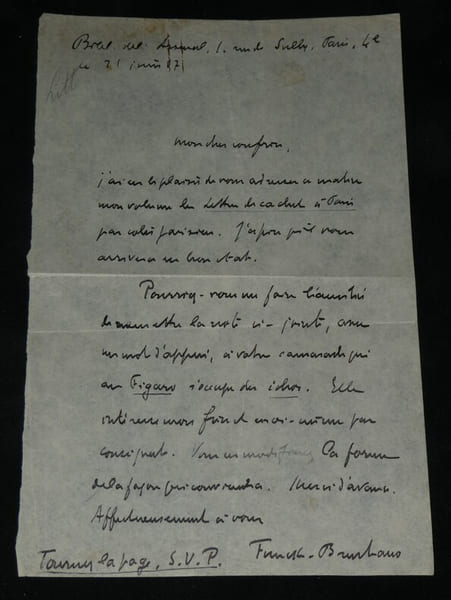 Bibl. de l'Arsenal, 1. rue de Sully, Paris, 4e
ce 21 juin
Mon cher confrère,
j'ai eu le plaisir de vous adresser ce matin
mon volume les Lettres de cachet à Paris
par colis parisien. J'espère qu'il vous
arrivera en bon état.
Pourriez-vous me faire l'amitié
de remettre la note ci-jointe, avec
un mot d'appui, à votre camarade qui
au Figaro s'occupe des échos. Elle
intéresse mon
conséquent. Vous en modifierez la forme
de la façon qui conviendra. Merci d'avance.
Affectueusement à vous
Funck-Brentano
Tournez la page, S.V.P.